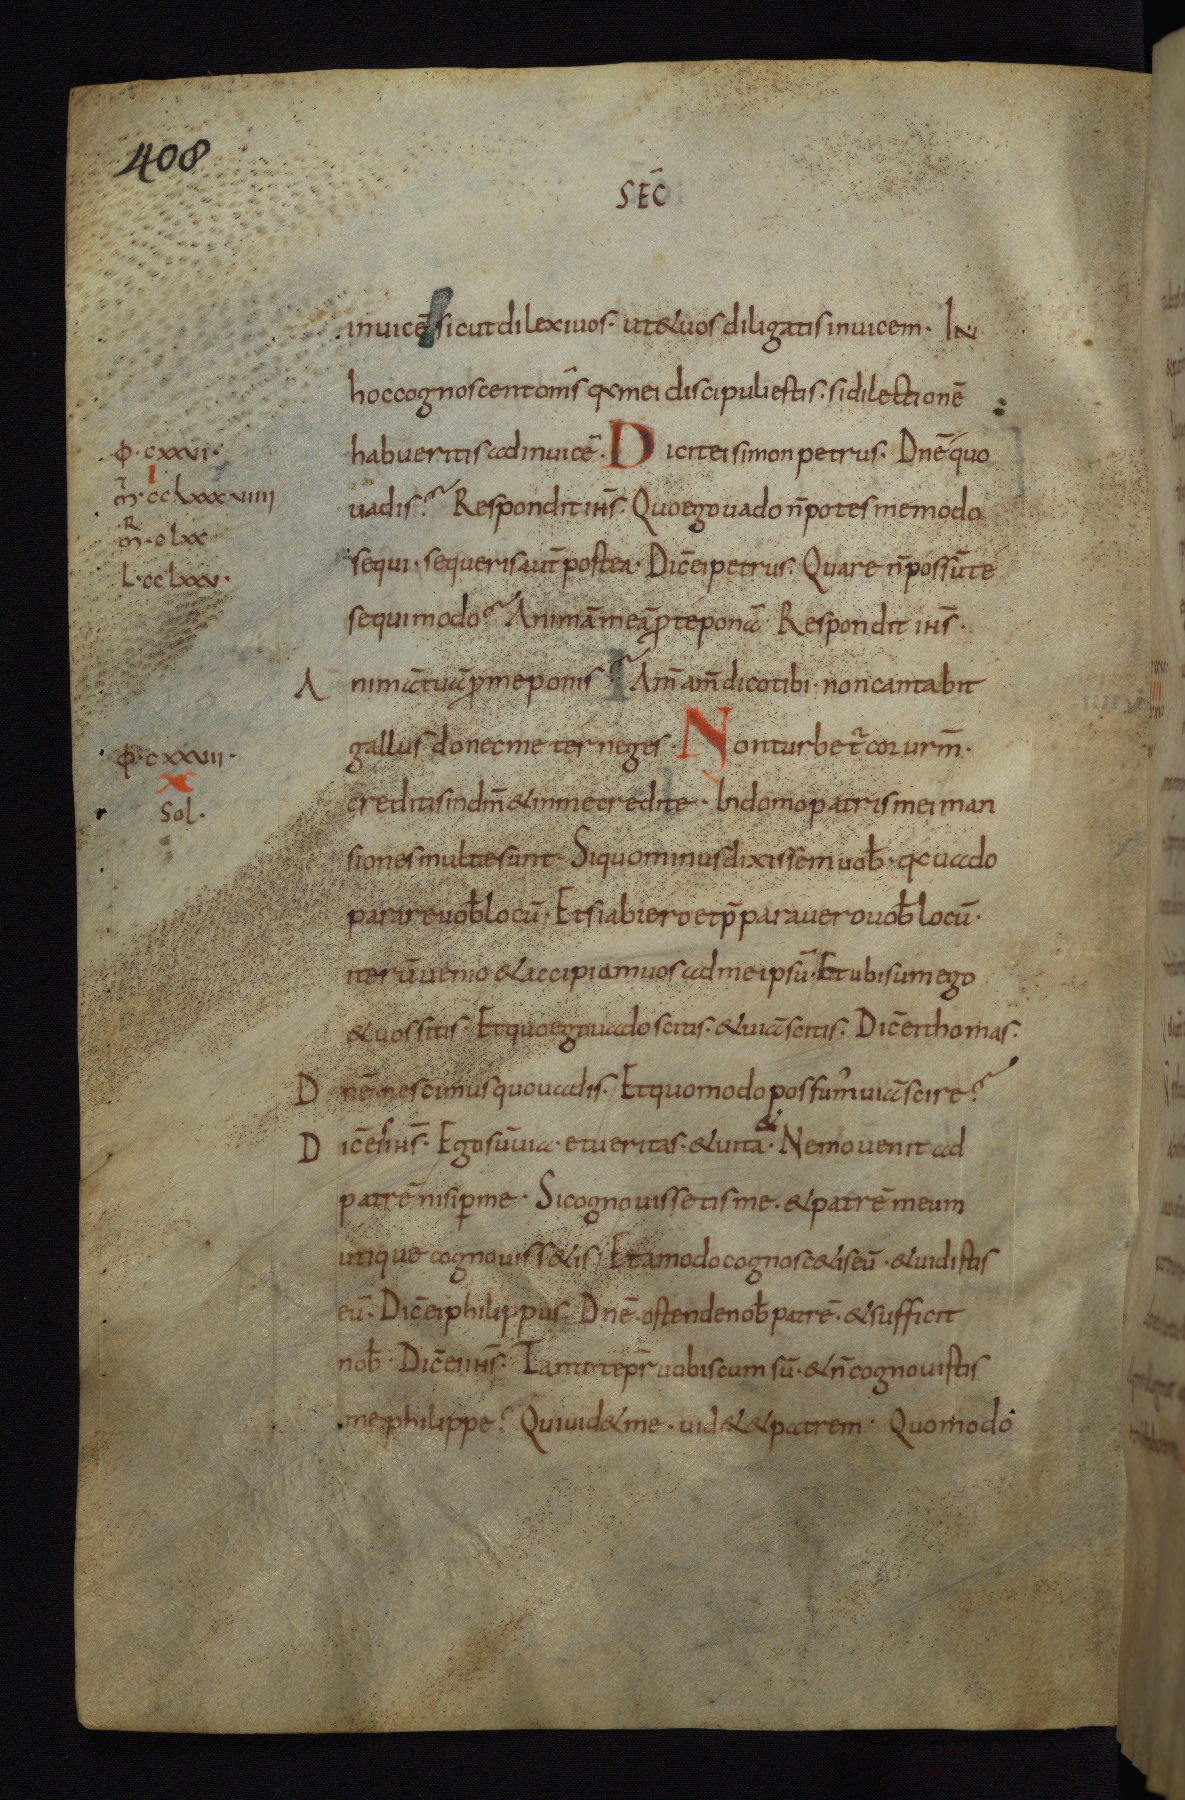 408
SEC̄
inuicē sicut dilexi uos· ut & uos diligatis inuicem· IN
hoc cognoscent om̄s qꝫ mei discipuli estis· si dilectionē
habueritis ad inuicē· Dicit ei simon petrus· Dn̄e quo
uadis? Respondit ih̄s· Quo ego uado n̄ potes me modo
sequi· sequeris aut̄ postea· Dic̄ ei petrus· Quare n̄ possū te
sequi modo? Animā meā ꝓ te ponā· Respondit ih̄s·
Animā tuā ꝓ me ponis? Am̄ am̄ dico tibi· non cantabit
gallus donec me ter neges· Non turbet̄ cor urm̄·
creditis in dm̄ & in me credite· In domo patris mei man
siones multe sunt· Si quo minus dixissem uob̄· qꝫ uado
parare uob̄ locū· Et si abiero et p̄parauero uob̄ locū·
iterū uenio & accipiam uos ad me ipsū· Et ubi sum ego
& uos sitis· Et quo ego uado scitis· & uiā scitis· Dic̄ ei thomas·
Dn̄e nescimus quo uadis· Et quomodo possum̄ uiā scire?
Dic̄ ei ih̄s· Ego sū uia· et ueritas· & uita· Nemo uenit ad
patrē nisi ꝑ me· Si cognouissetis me· & patrē meum
utique cognouiss&is· Et amodo cognosc&is eū· & uidistis
eū· Dic̄ ei philippus· Dn̄e· ostende nob̄ patrē· & sufficit
nob̄· Dic̄ ei ih̄s· Tanto tēpr̄ uobiscum sū· & n̄ cognouistis
me philippe? Qui uid& me· uid& & patrem· Quomodo
Φ·cxxvi·
I
m̄·cclxxxviiii
R
m̄·clxx
L·cclxxv·
Φ·cxxvii·
x
Sol·